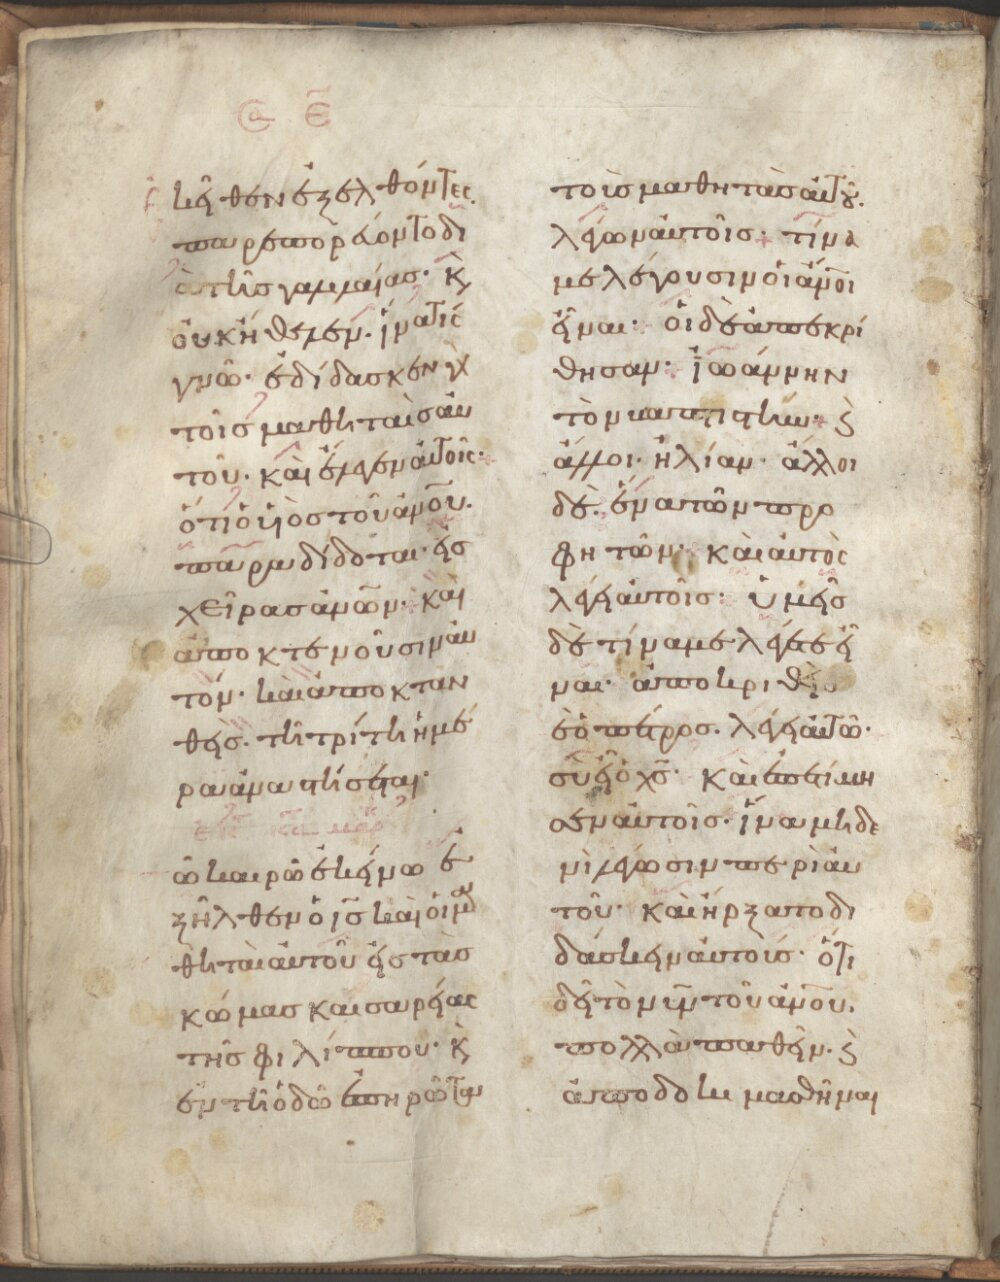 κεῖθεν ἐξελθόντες
παρεπορεύοντο δι
ὰ τῆς γαλιλαίας· κ
οὐκ ἤθελεν· ἵνα τίς
γνῶ· ἐδίδασκεν γὰρ
τοῖς μαθηταῖς αὐ
τοῦ· καὶ ἔλεγεν αὐτοῖς·
ὅτι ὁ υἱὸς τοῦ ἀνου·
παραδίδοται εἰς
χεῖρας ἀνων· καὶ
ἀποκτενοῦσιν αὐ
τόν· καὶ ἀποκταν
θείς· τῆ τρίτη ἡμέ
ρα ἀναστήσεται·
ῶ καιρῶ ἐκείνω ἐ
ξῆλθεν ὁ ις καὶ οἱ μα
θηταὶ αὐτοῦ εἰς τὰς
κώμας καισαρείας
τῆς φιλίππου· κ
ἐν τῆ ὁδῶ ἐπηρώτα
τοῖς μαθητὰς αὐτοῦ·
λέγων αὐτοῖς· τίνα
με λέγουσιν οἱ ανοι
εἶναι· οἱ δὲ ἀπεκρί
θησαν· ἰωάννην
τὸν βαπτιστήν· κ
ἄλλοι ἠλίαν· ἄλλοι
δὲ· ἕνα τῶν προ
φητῶν· καὶ αὐτὸς
λέγει αὐτοῖς· ὑμεῖς
δὲ τίνα με λέγετε εἶ
ναι· ἀποκριθεὶς
ὁ πέτρος· λέγει αὐτῶ·
σὺ εἶ ὁ χς· καὶ ἐπετίμη
σεν αὐτοῖς· ἵνα μηδε
νὶ λέγωσιν περὶ αὐ
τοῦ· καὶ ἤρξατο δι
δάσκειν αὐτοῖς· ὅτι
δεῖ τὸν υν τοῦ ανου·
πολλὰ παθεῖν· κ
ἀποδοκιμασθῆναι